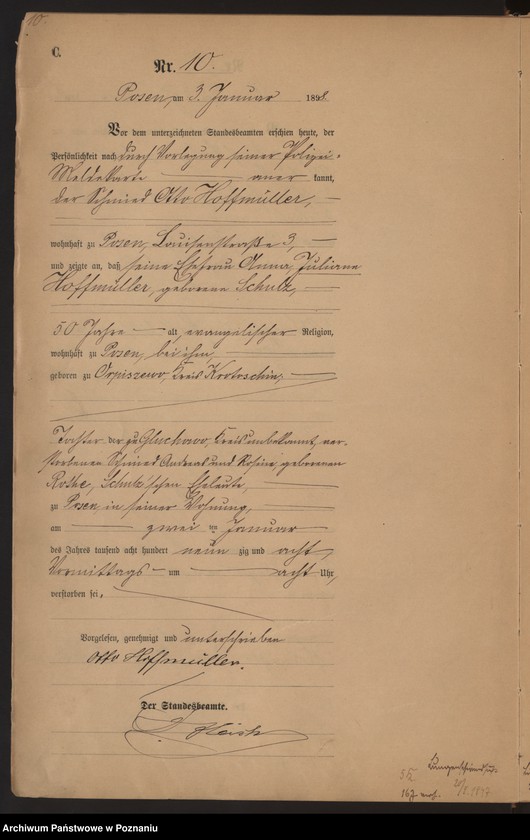 10.
C.
Nr. 10.
Posen, am 3. Januar 1898
Vor dem unterzeichneten Standesbeamten erschien heute, der
Persönlichkeit nach durch Vorlegung seiner Polizei-
Meldekarte — aner kannt,
der Schmied Otto Hoffmüller, —
wohnhaft zu Posen, Louisenstraße 3, —
und zeigte an, daß seine Ehefrau Anna Juliane
Hoffmüller, geborene Schulz, —
50 Jahre — alt, evangelischer Religion,
wohnhaft zu Posen, bei ihm, —
geboren zu Orpiszewo, Kreis Krotoschin, —
Tochter der zu Gluchowo, Kreis unbekannt, ver-
storbenen Schmied Andreas und Rosine, geborenen
Rothe, Schulz'schen Eheleute, —
zu Posen in seiner Wohnung, —
am — zwei ten Januar —
des Jahres tausend acht hundert neun zig und acht,
Vormittags — um — acht Uhr,
verstorben sei.
Vorgelesen, genehmigt und unterschrieben
Otto Hoffmüller.
Der Standesbeamte.
Archiwum Państwowe w Poznaniu